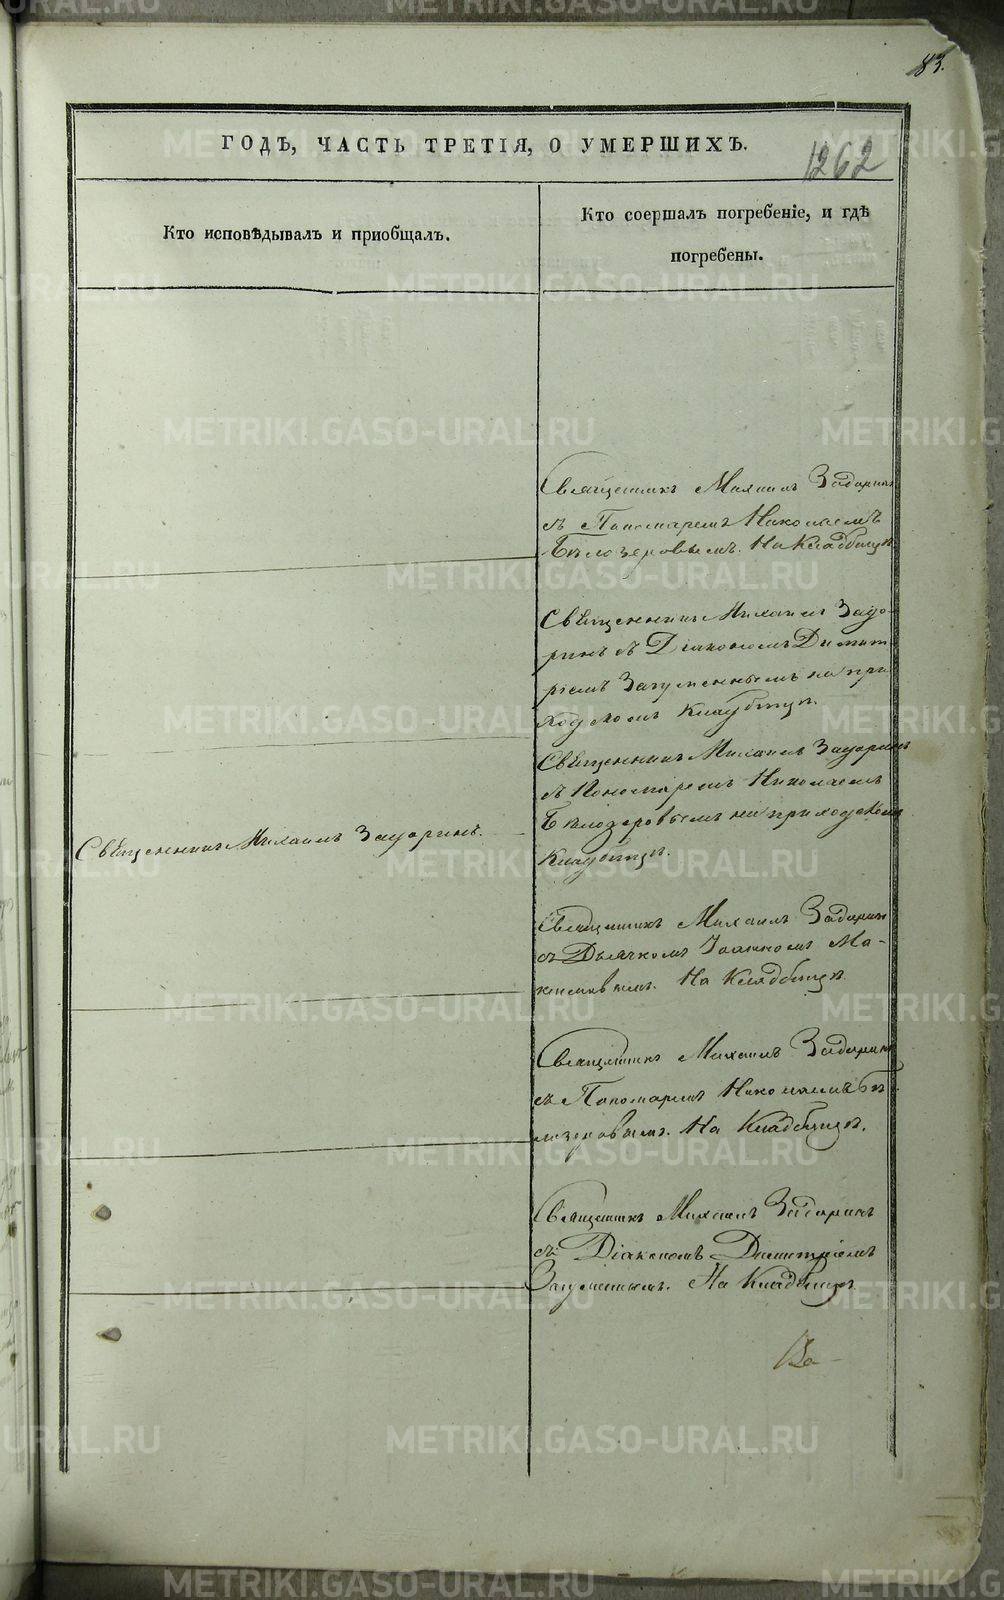 83.
ГОДѢ, ЧАСТЬ ТРЕТІЯ, О УМЕРШИХЪ.
1262
Кто исповѣдывалъ и приобщалъ.
Кто соершалъ погребеніе, и гдѣ
погребены.
Священникъ Михаилъ Задоринъ
съ Пономаремъ Николаемъ
Бѣлозеровымъ. На Кладбищѣ.
Священникъ Михаилъ Задо-
ринъ съ Діакономъ Димит
ріемъ Загуменнымъ на при
ходскомъ Кладбищѣ.
Священникъ Михаилъ Задоринъ
съ Пономаремъ Николаемъ
Бѣлозеровымъ на приходскомъ
Кладбищѣ.
Священникъ Михаилъ Задоринъ.
Священникъ Михаилъ Задоринъ
съ Дьячкомъ Іоанномъ Ма-
На Кладбищѣ
Священникъ Михаилъ Задоринъ
съ Пономаремъ Николаемъ Бѣ
лозеровымъ. На Кладбищѣ.
Священникъ Михаилъ Задоринъ
съ Діакономъ Димитріемъ
Загуменнымъ. На Кладбищѣ.
METRIKI.GASO-URAL.RU